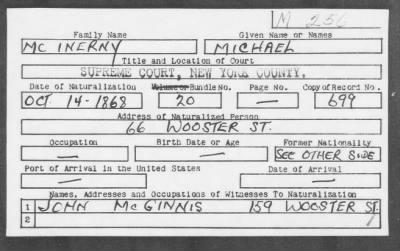 M 256
Family Name Given Name or Names
MC INERNY MICHAEL
Title and Location of Court
SUPREME COURT, NEW YORK COUNTY.
Date of Naturalization Volume or Bundle No. Page No. Copy of Record No.
OCT. 14-1868 20 — 699
Address of Naturalized Person
66 WOOSTER ST.
Occupation Birth Date or Age Former Nationality
— — SEE OTHER SIDE
Port of Arrival in the United States Date of Arrival
— —
Names, Addresses and Occupations of Witnesses To Naturalization
1 JOHN McGINNIS 159 WOOSTER ST.
2